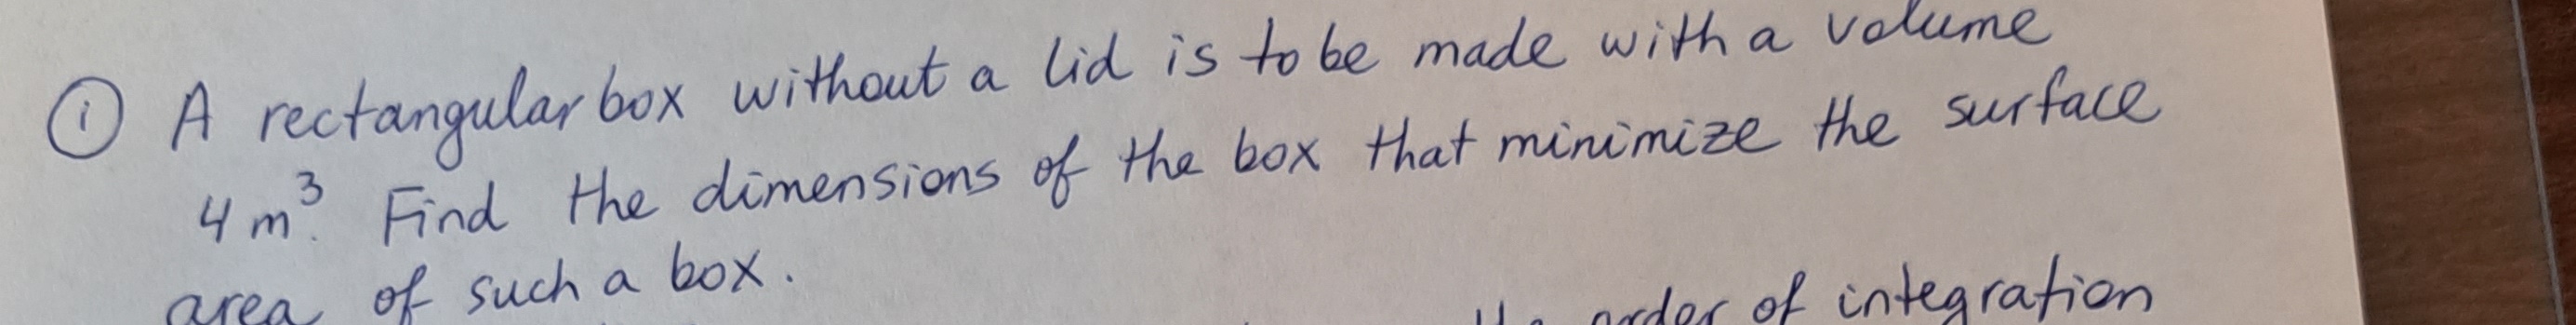 ① A rectangular box without a lid is to be made with a volume
4 m³. Find the dimensions of the box that minimize the surface
area of such a box.
order of integration